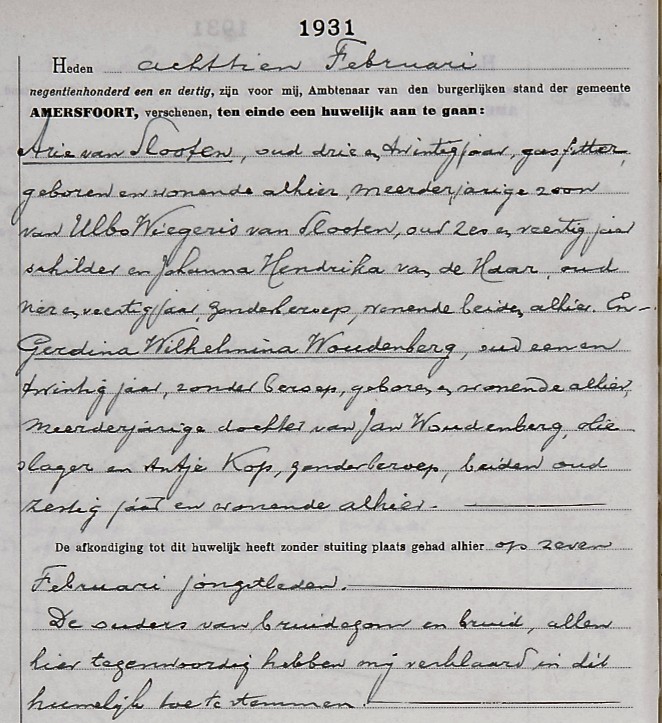 1931
Heden achttien Februari
negentienhonderd een en dertig, zijn voor mij, Ambtenaar van den burgerlijken stand der gemeente
AMERSFOORT, verschenen, ten einde een huwelijk aan te gaan:
Arie van Slooten, oud drie en twintig jaar, gasfitter,
geboren en wonende alhier, meerderjarige zoon
van Ulbo Wiegeris van Slooten, oud zes en veertig jaar
schilder en Johanna Hendrika van de Haar, oud
vier en veertig jaar, zonder beroep, wonende beiden alhier. En
Gerdina Wilhelmina Woudenberg, oud een en
twintig jaar, zonder beroep, geboren en wonende alhier,
meerderjarige dochter van Jan Woudenberg, olie
slager en Antje Kop, zonder beroep, beiden oud
zestig jaar en wonende alhier.
De afkondiging tot dit huwelijk heeft zonder stuiting plaats gehad alhier op zeven
Februari jongstleden.
De ouders van bruidegom en bruid, allen
hier tegenwoordig hebben mij verklaard in dit
huwelijk toe te stemmen.